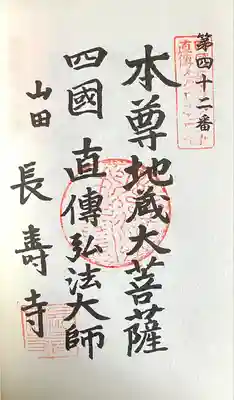 第四十二番
本尊地蔵大菩薩
四國直傳弘法大師
山田 長壽寺